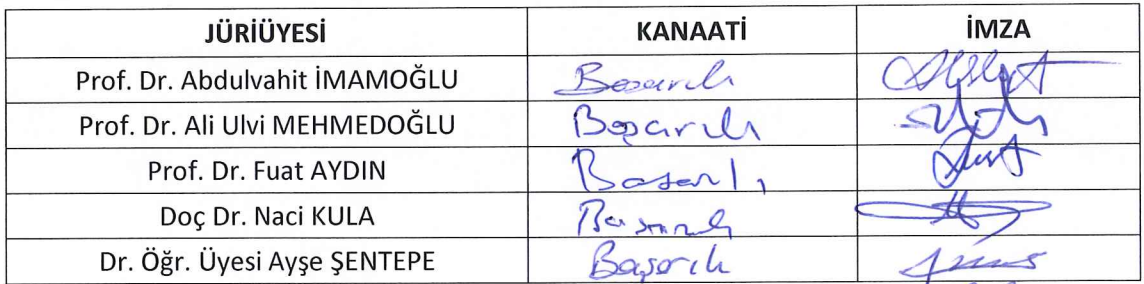 JÜRİÜYESİ KANAATİ İMZA
Prof. Dr. Abdulvahit İMAMOĞLU Başarılı
Prof. Dr. Ali Ulvi MEHMEDOĞLU Başarılı
Prof. Dr. Fuat AYDIN Başarılı
Doç Dr. Naci KULA Başarılı
Dr. Öğr. Üyesi Ayşe ŞENTEPE Başarılı